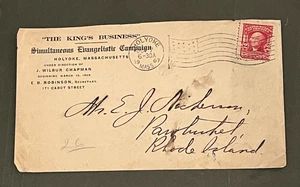 "THE KING'S BUSINESS"
Simultaneous Evangelistic Campaign
HOLYOKE, MASSACHUSETTS
UNDER DIRECTION OF
J. WILBUR CHAPMAN
E. B. ROBINSON, SECRETARY
171 CABOT STREET
HOLYOKE
6-30A
1907
MASS.
Mrs. E. J. Nickerson,
Pawtucket,
Rhode Island